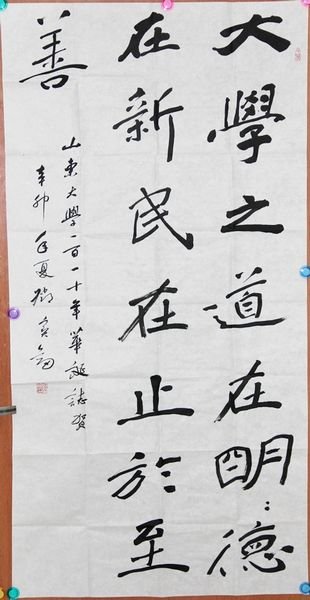 大學之道在明々德
在新民在止於至
善
山東大學一百一十年華誕誌賀
辛卯年夏